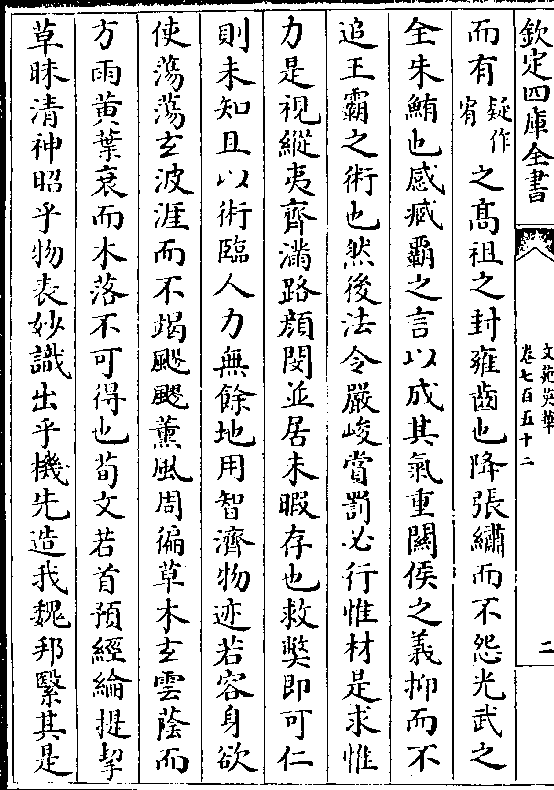 欽定四庫全書
文苑英華
卷七百五十二
二
而有疑作宥之髙祖之封雍齒也降張繡而不怨光武之
全朱鮪也感臧霸之言以成其氣重關侯之義抑而不
追王霸之術也然後法令嚴峻賞罰必行惟材是求惟
力是視縱夷齊滿路顔閔並居未暇存也救獘即可仁
則未知且以術臨人力無餘地用智濟物迹若容身欲
使蕩蕩玄波涯而不竭飂飂薫風周徧草木玄雲蔭而
方雨黄葉衰而木落不可得也荀文若首預經綸提挈
草昧清神昭乎物表妙識出乎機先造我魏邦繄其是